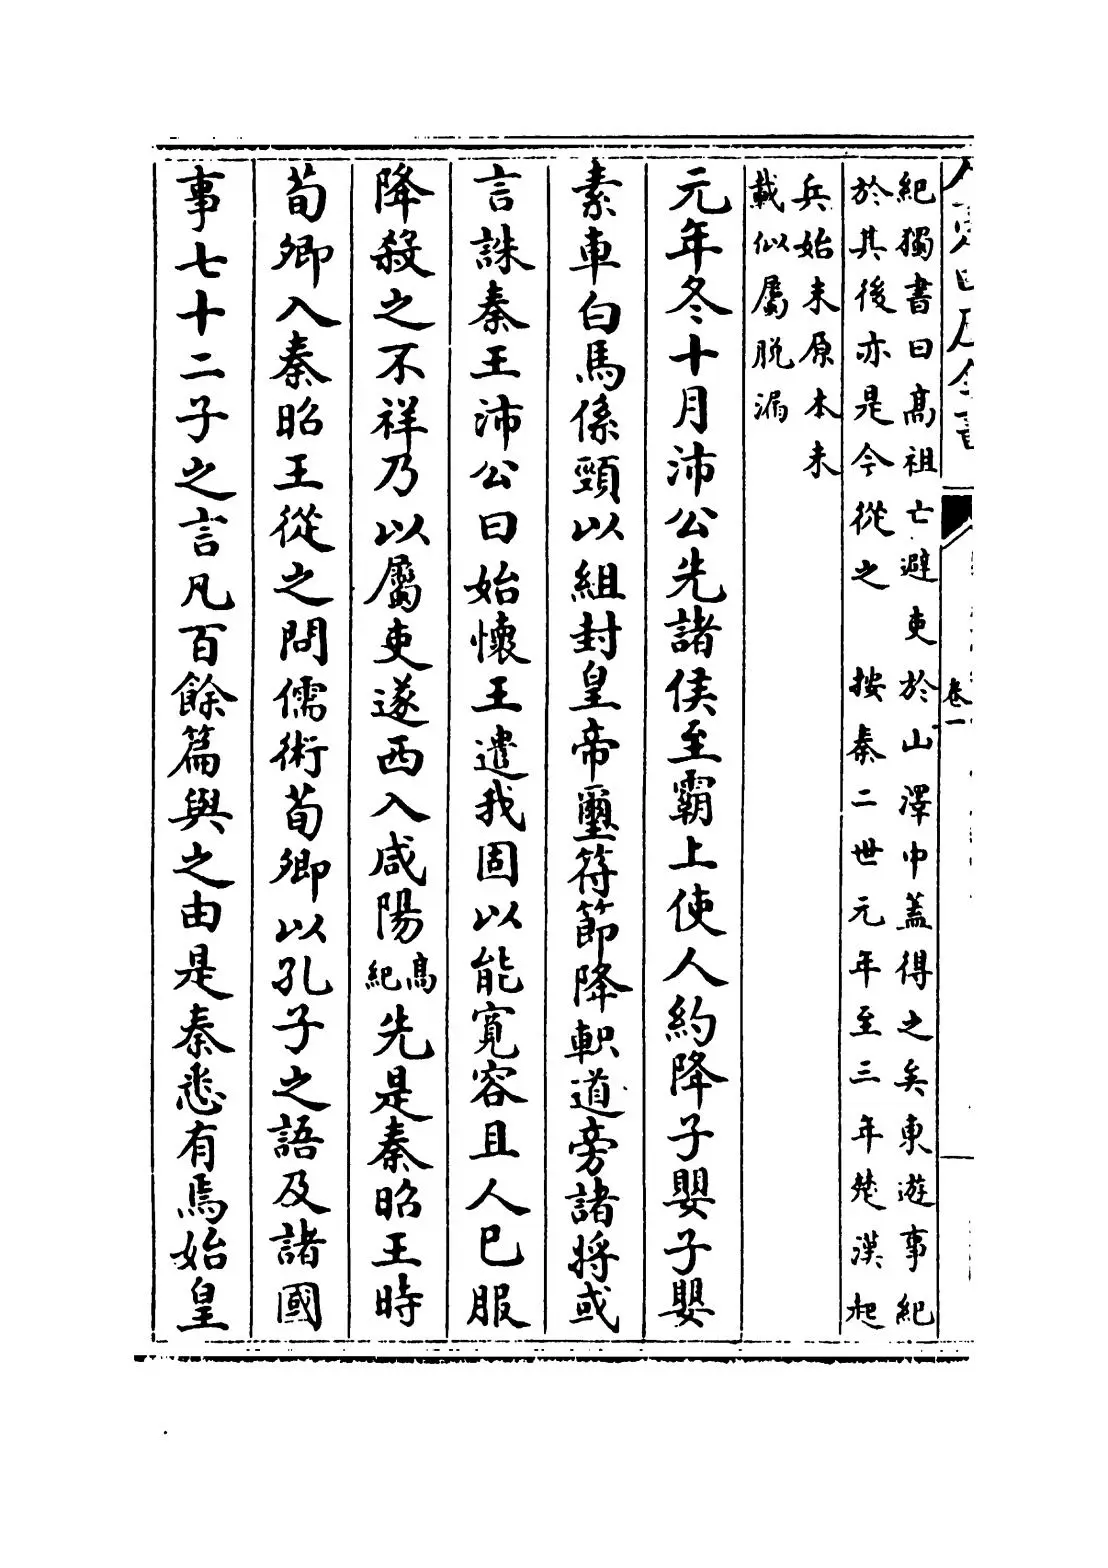 紀獨書曰髙祖亡避吏於山澤中蓋得之矣東遊事紀
於其後亦是今從之　按秦二世元年至三年楚漢起
兵始末原本未
載似屬脱漏
元年冬十月沛公先諸侯至霸上使人約降子嬰子嬰
素車白馬係頸以組封皇帝璽符節降軹道旁諸將或
言誅秦王沛公曰始懷王遣我固以能寛容且人已服
降殺之不祥乃以屬吏遂西入咸陽髙紀先是秦昭王時
荀卿入秦昭王從之問儒術荀卿以孔子之語及諸國
事七十二子之言凡百餘篇與之由是秦悉有焉始皇
卷一